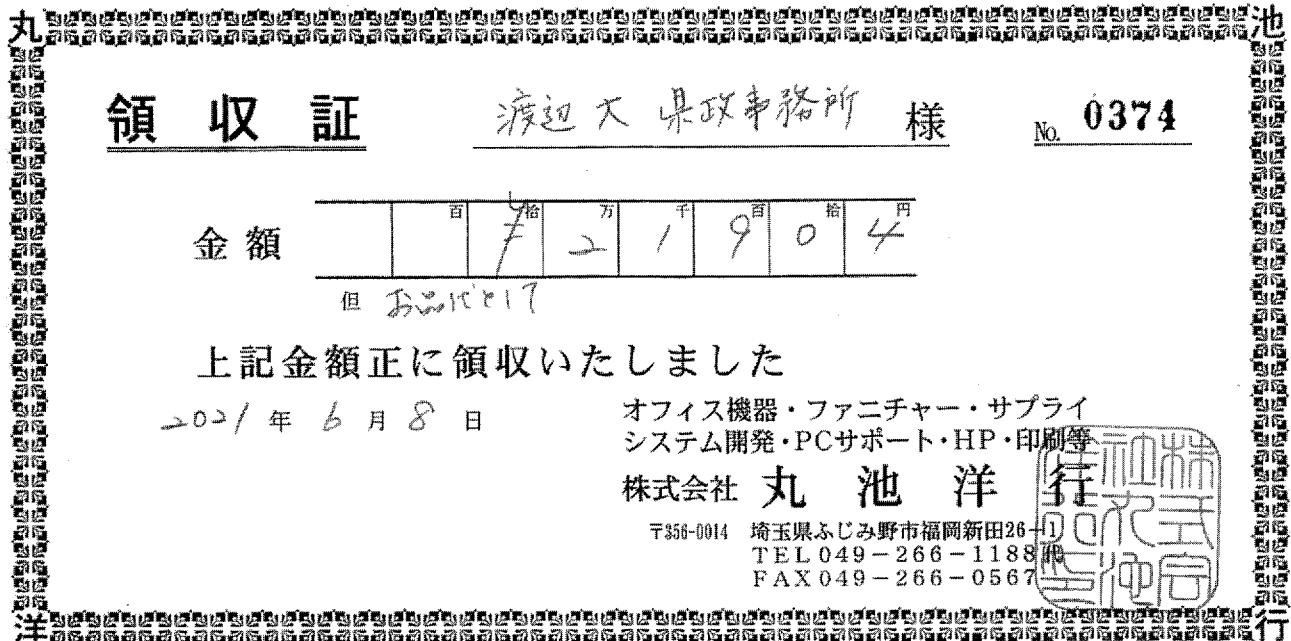 丸 池
領収証 渡辺大 県政事務所 様 No. 0374
金額 百 拾 万 千 百 拾 円
¥ 2 1 9 0 4
但 お品代として
上記金額正に領収いたしました
2021 年 6 月 8 日
オフィス機器・ファニチャー・サプライ
システム開発・PCサポート・HP・印刷等
株式会社 丸池洋行
〒356-0014 埼玉県ふじみ野市福岡新田26-1
TEL 049-266-1188 代
FAX 049-266-0567
洋 行